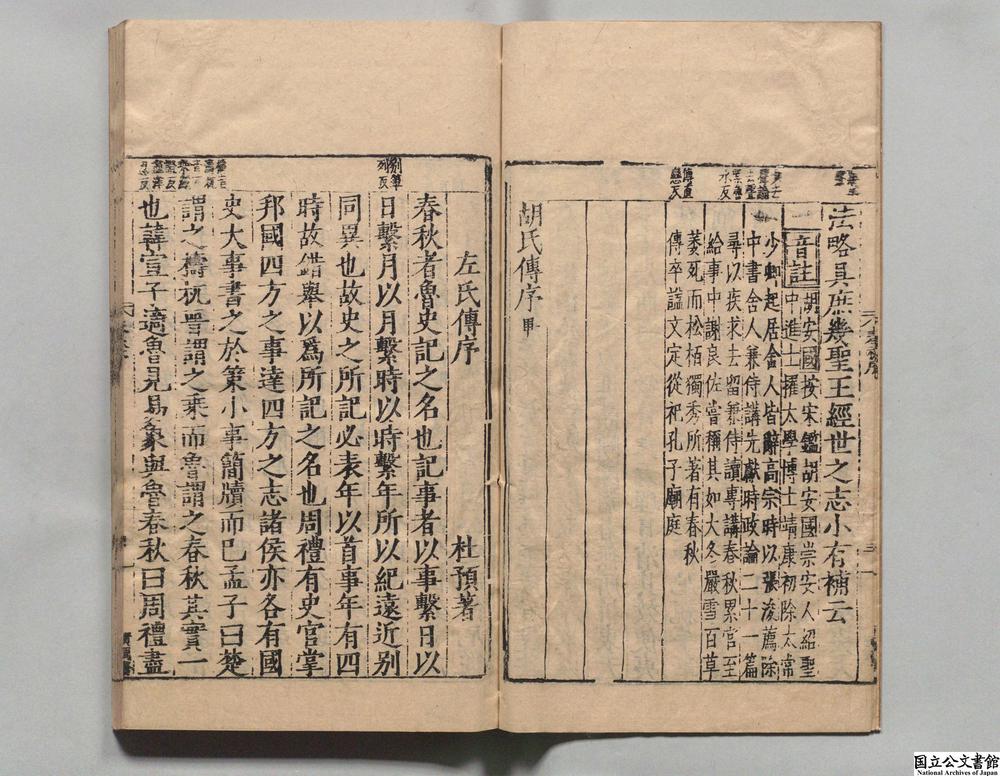 法略具庶幾聖王經世之志小有補云
音註
胡安國按宋鑑胡安國崇安人紹聖
中進士擢太學博士靖康初除太常
少卿起居舍人皆辭高宗時以張浚薦除
中書舍人兼侍講先獻時政論二十一篇
尋以疾求去留兼侍讀專講春秋累官至
給事中謝良佐嘗稱其如大冬嚴雪百草
萎死而松栢獨秀所著有春秋
傳卒諡文定從祀孔子廟庭
胡氏傳序
左氏傳序
杜預著
春秋者魯史記之名也記事者以事繫日以
日繫月以月繫時以時繫年所以紀遠近別
同異也故史之所記必表年以首事年有四
時故錯舉以爲所記之名也周禮有史官掌
邦國四方之事達四方之志諸侯亦各有國
史大事書之於策小事簡牘而已孟子曰楚
謂之檮杌晉謂之乘而魯謂之春秋其實一
也韓宣子適魯見易象與魯春秋曰周禮盡
国立公文書館
National Archives of Japan